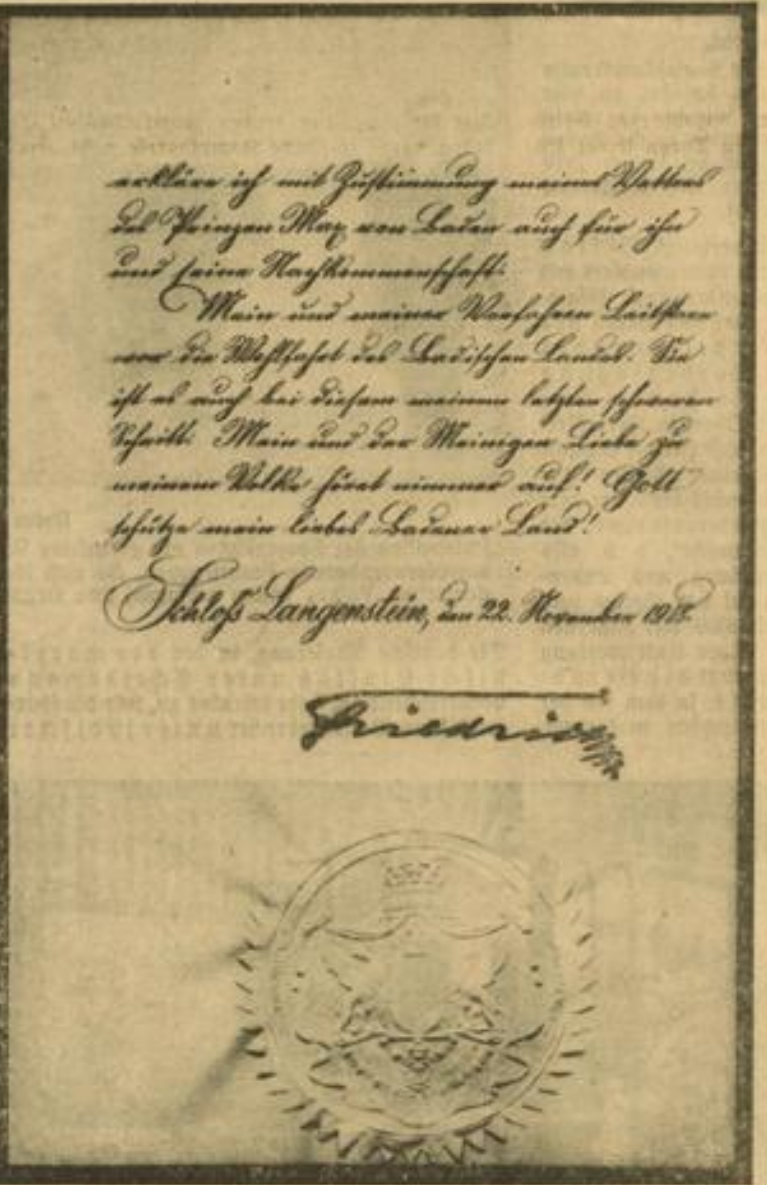 erkläre ich mit Zustimmung meines Vetters
des Prinzen Max von Baden auch für ihn
und seine Nachkommenschaft.
Mein und meiner Vorfahren Leitstern
war die Wohlfahrt des Badischen Landes. Sie
ist es auch bei diesem meinem letzten schweren
Schritt. Mein und der Meinigen Liebe zu
meinem Volke höret nimmer auf! Gott
schütze mein liebes Badener Land!
Schloß Langenstein, den 22. November 1918.
Friedrich